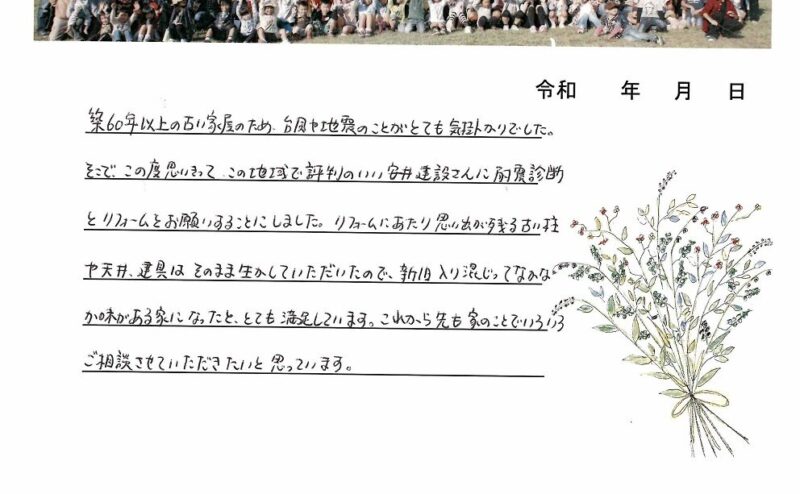 令和　年　月　日
築60年以上の古い家屋のため、台風や地震のことがとても気掛かりでした。
そこで、この度思いきって、この地域で評判のいい安井建設さんに耐震診断
とリフォームをお願いすることにしました。リフォームにあたり思い出が残る古い柱
や天井、建具はそのまま生かしていただいたので、新旧入り混じってなかな
か味がある家になったと、とても満足しています。これから先も家のことでいろいろ
ご相談させていただきたいと思っています。